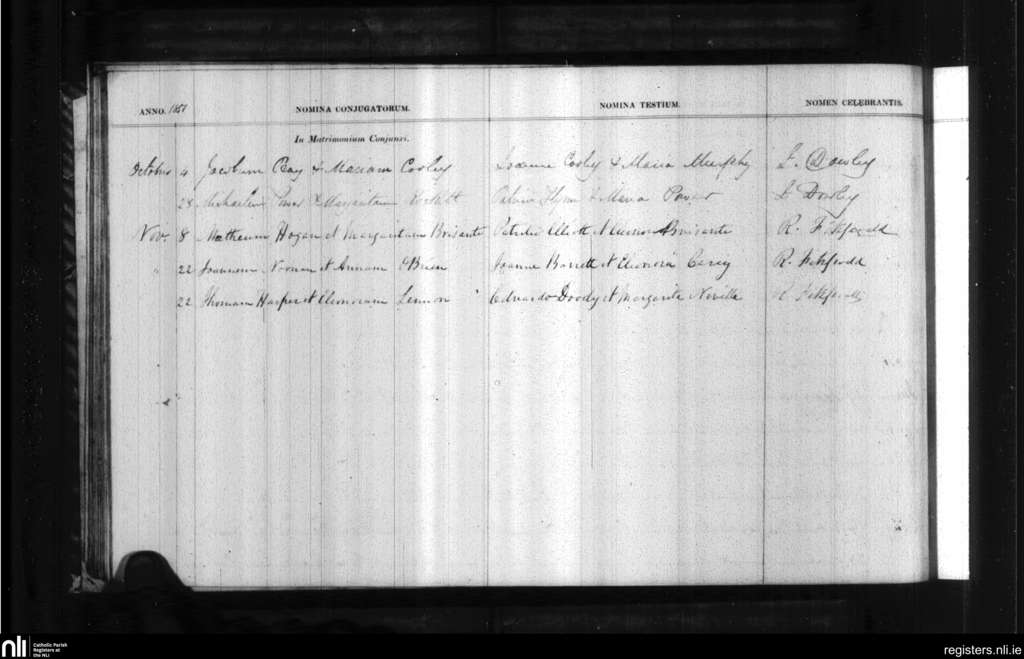 ANNO. 1851 NOMINA CONJUGATORUM. NOMINA TESTIUM. NOMEN CELEBRANTIS.
In Matrimonium Conjunxi.
October 4 Jacobum Ray & Mariam Cooley Joanne Cooley & Maria Murphy J. Dowley
28 Michaelem Power & Margaritam Patricio Flynn & Maria Power J Dowley
Novr 8 Matheum Hogan et Margaritam Broisante Patricio Elliott Broisante R. Fitzgerald
" 22 Joannem Noonan et Annam O'Brien Joanne Barrett et Eleonora Carey R. Fitzgerald
22 Thomam Harper et Eleonoram Lennon Edvardo Doody et Margarita Neville R Fitzgerald
nli Catholic Parish
Registers at
the NLI
registers.nli.ie